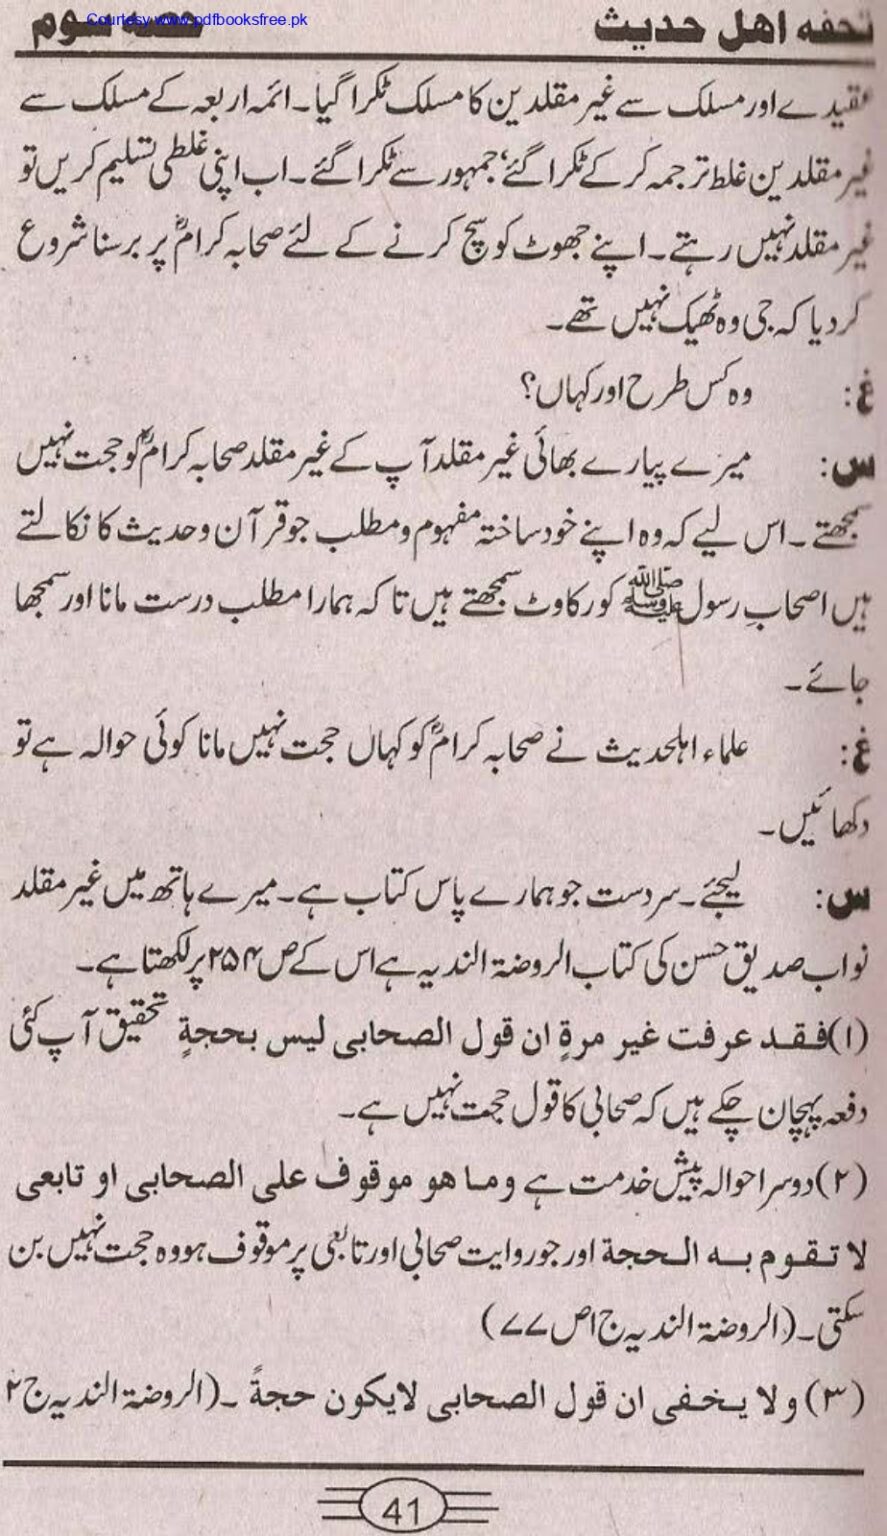 Courtesy www.pdfbooksfree.pk
تحفہ اهل حدیث حصہ سوم
عقیدے اور مسلک سے غیر مقلدین کا مسلک ٹکرا گیا۔ ائمہ اربعہ کے مسلک سے
غیر مقلدین غلط ترجمہ کر کے ٹکرا گئے، جمہور سے ٹکرا گئے۔ اب اپنی غلطی تسلیم کریں تو
غیر مقلد نہیں رہتے۔ اپنے جھوٹ کو سچ کرنے کے لئے صحابہ کرامؓ پر برسنا شروع
کر دیا کہ جی وہ ٹھیک نہیں تھے۔
غ: وہ کس طرح اور کہاں؟
س: میرے پیارے بھائی غیر مقلد آپ کے غیر مقلد صحابہ کرامؓ کو حجت نہیں
سمجھتے۔ اس لیے کہ وہ اپنے خود ساختہ مفہوم و مطلب جو قرآن و حدیث کا نکالتے
ہیں اصحابِ رسول ﷺ کو رکاوٹ سمجھتے ہیں تا کہ ہمارا مطلب درست مانا اور سمجھا
جائے۔
غ: علماء اہلحدیث نے صحابہ کرامؓ کو کہاں حجت نہیں مانا کوئی حوالہ ہے تو
دکھائیں۔
س: لیجئے۔ سردست جو ہمارے پاس کتاب ہے۔ میرے ہاتھ میں غیر مقلد
نواب صدیق حسن کی کتاب الروضۃ الندیہ ہے اس کے ص ۲۵۴ پر لکھتا ہے۔
(۱) فقد عرفت غیر مرةٍ ان قول الصحابی لیس بحجةٍ تحقیق آپ کئی
دفعہ پہچان چکے ہیں کہ صحابی کا قول حجت نہیں ہے۔
(۲) دوسرا حوالہ پیش خدمت ہے وما هو موقوف علی الصحابی او تابعی
لا تقوم به الحجة اور جو روایت صحابی اور تابعی پر موقوف ہو وہ حجت نہیں بن
سکتی۔ (الروضۃ الندیہ ج ا ص ۷۷)
(۳) ولا یخفی ان قول الصحابی لایکون حجةً ۔ (الروضۃ الندیہ ج ۲
41